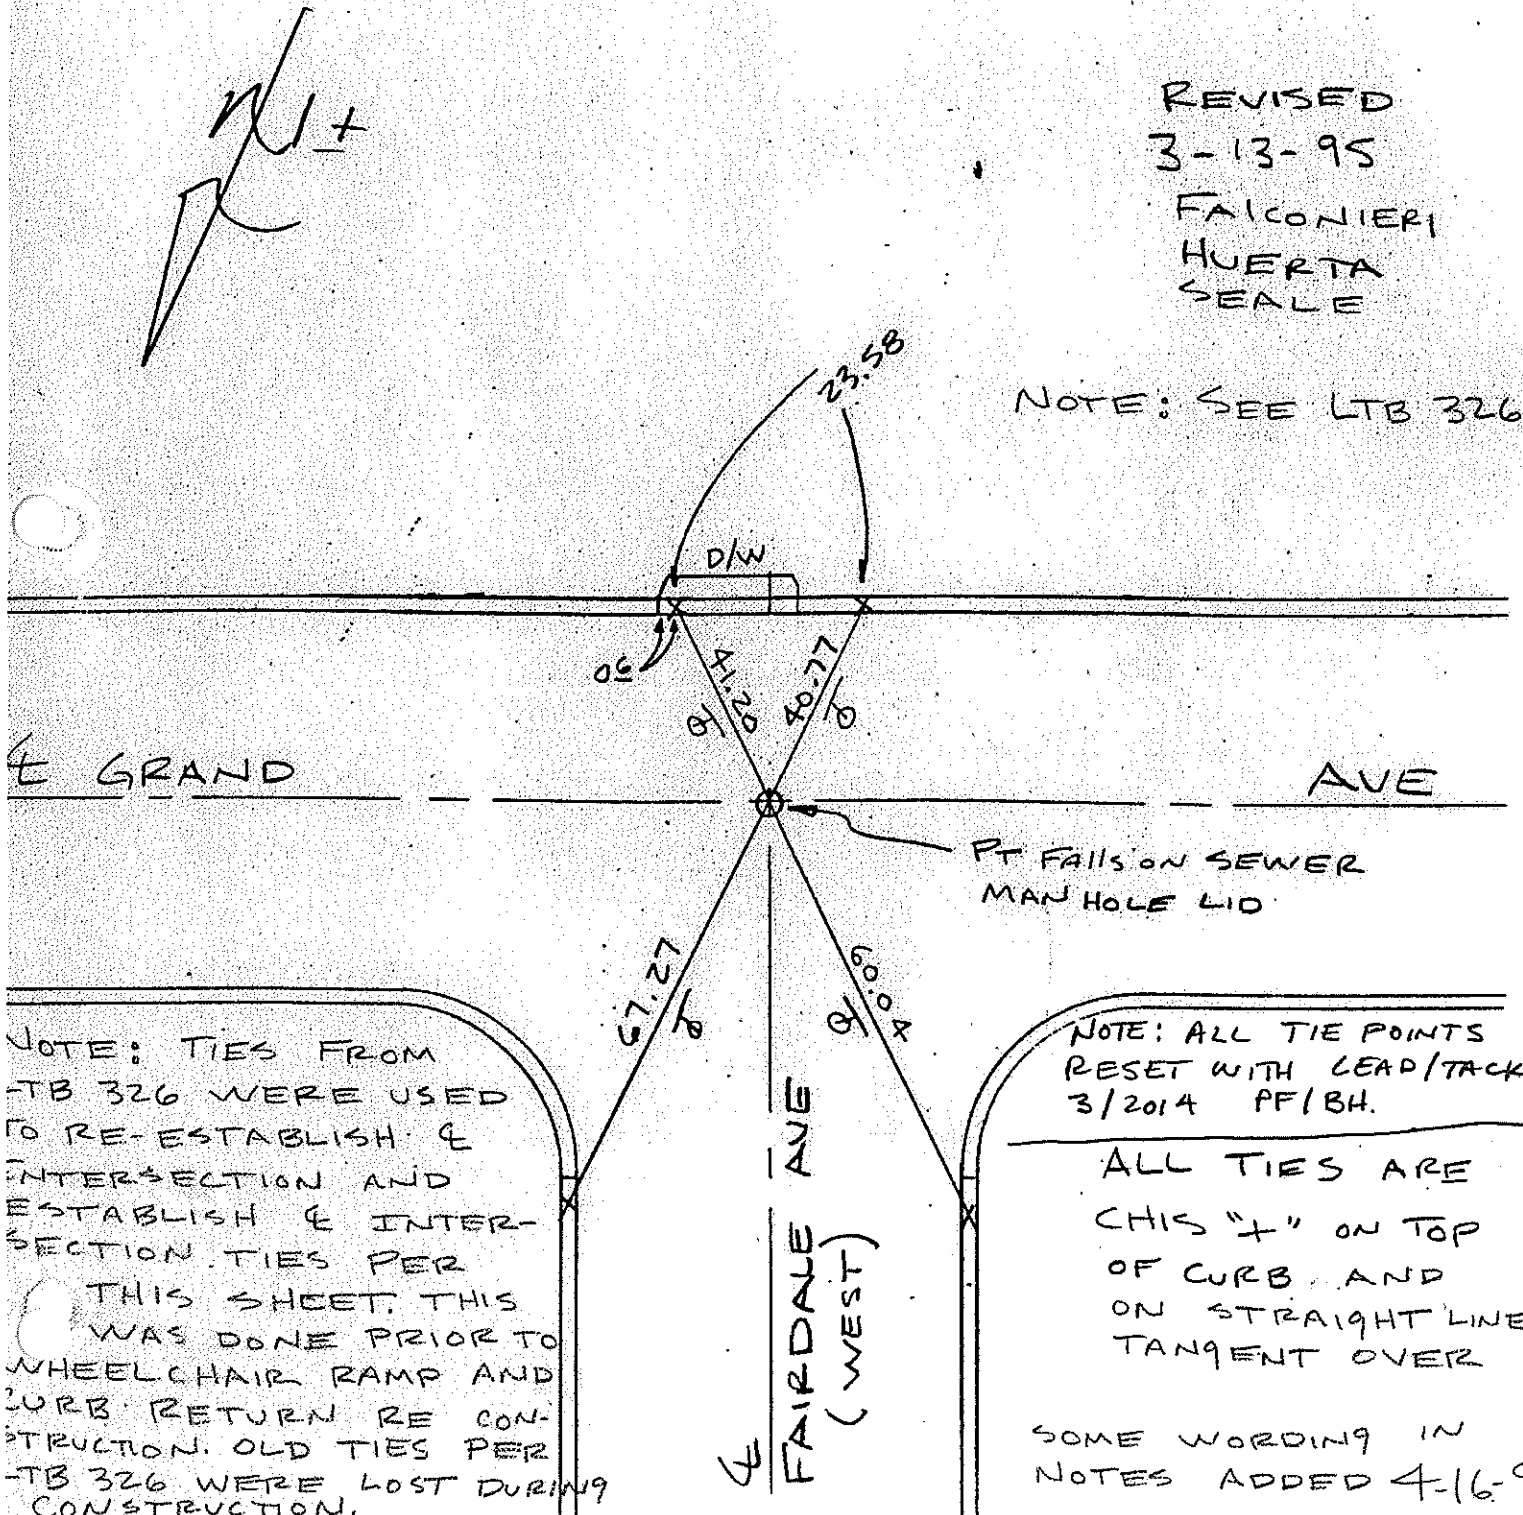 N ±
REVISED
3-13-95
FALCONIERI
HUERTA
SEALE
NOTE: SEE LTB 326
23.58
D/W
41.20
40.77
℄ GRAND AVE
PT Falls on SEWER
MAN HOLE LID
67.27
60.04
NOTE: TIES FROM
LTB 326 WERE USED
TO RE-ESTABLISH ℄
INTERSECTION AND
ESTABLISH ℄ INTER-
SECTION TIES PER
THIS SHEET. THIS
WAS DONE PRIOR TO
WHEELCHAIR RAMP AND
CURB RETURN RE CON-
STRUCTION. OLD TIES PER
LTB 326 WERE LOST DURING
CONSTRUCTION.
℄ FAIRDALE AVE
(WEST)
NOTE: ALL TIE POINTS
RESET WITH LEAD/TACK
3/2014 PF/BH.
ALL TIES ARE
CHIS "+" ON TOP
OF CURB AND
ON STRAIGHT LINE
TANGENT OVER
SOME WORDING IN
NOTES ADDED 4-16-